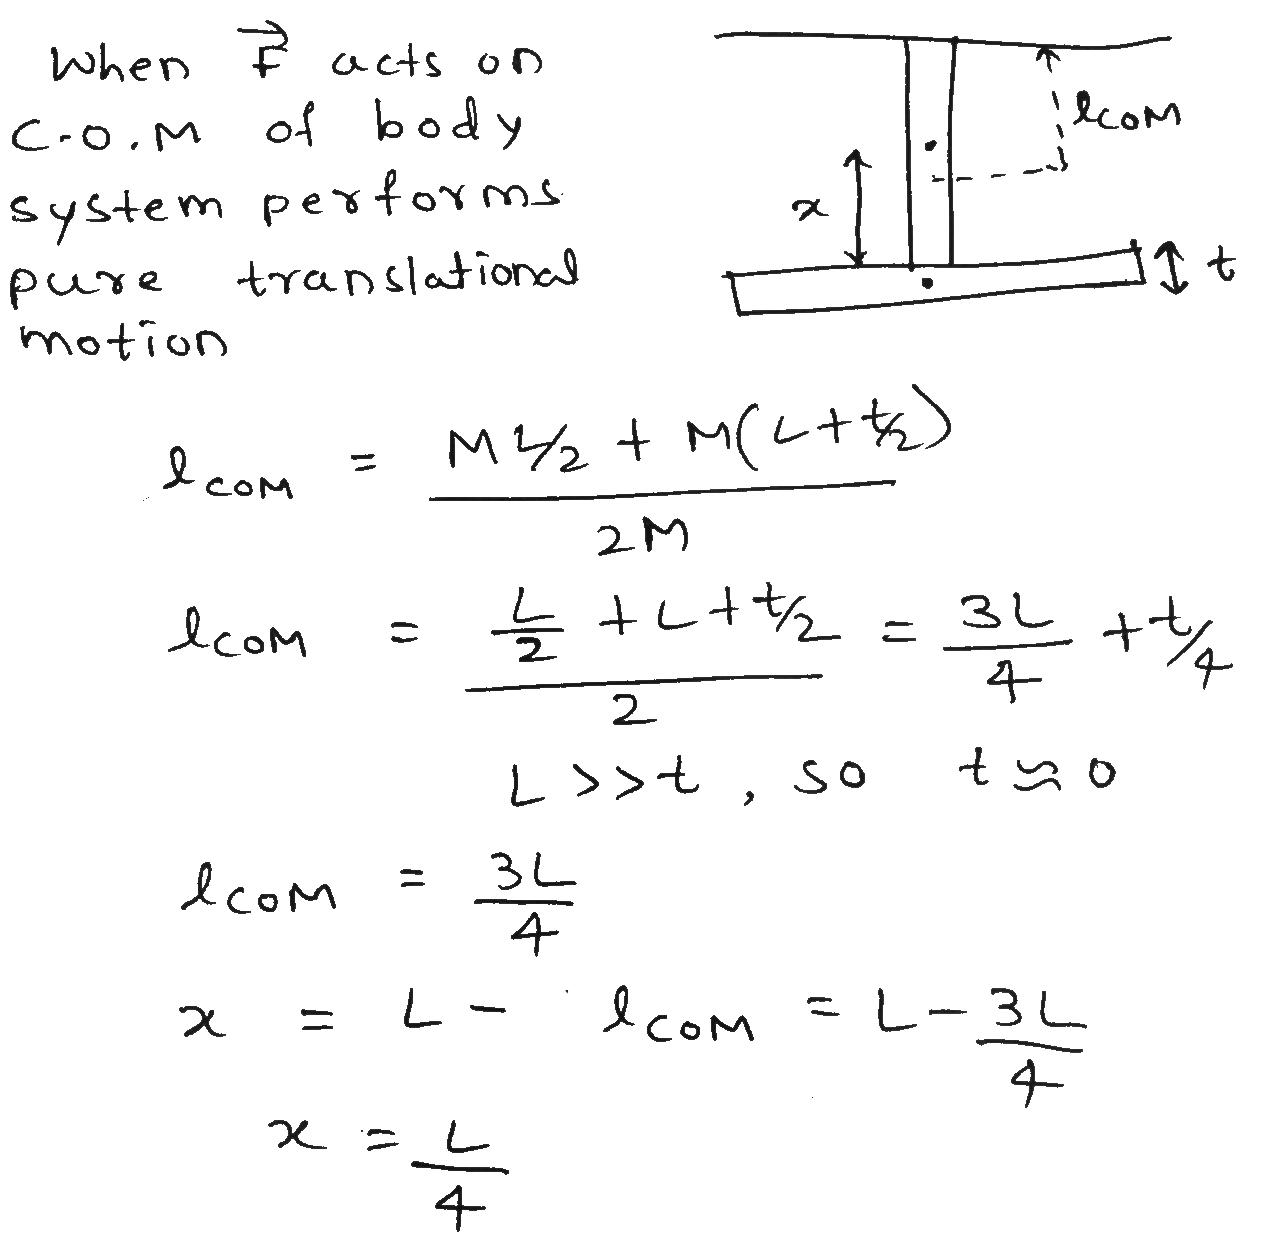 When F⃗ acts on
C.O.M of body
system performs
pure translational
motion
l COM
x
t
l COM = (M L/2 + M(L + t/2)) / 2M
l COM = (L/2 + L + t/2) / 2 = 3L/4 + t/4
L >> t , so t ≈ 0
l COM = 3L/4
x = L - l COM = L - 3L/4
x = L/4